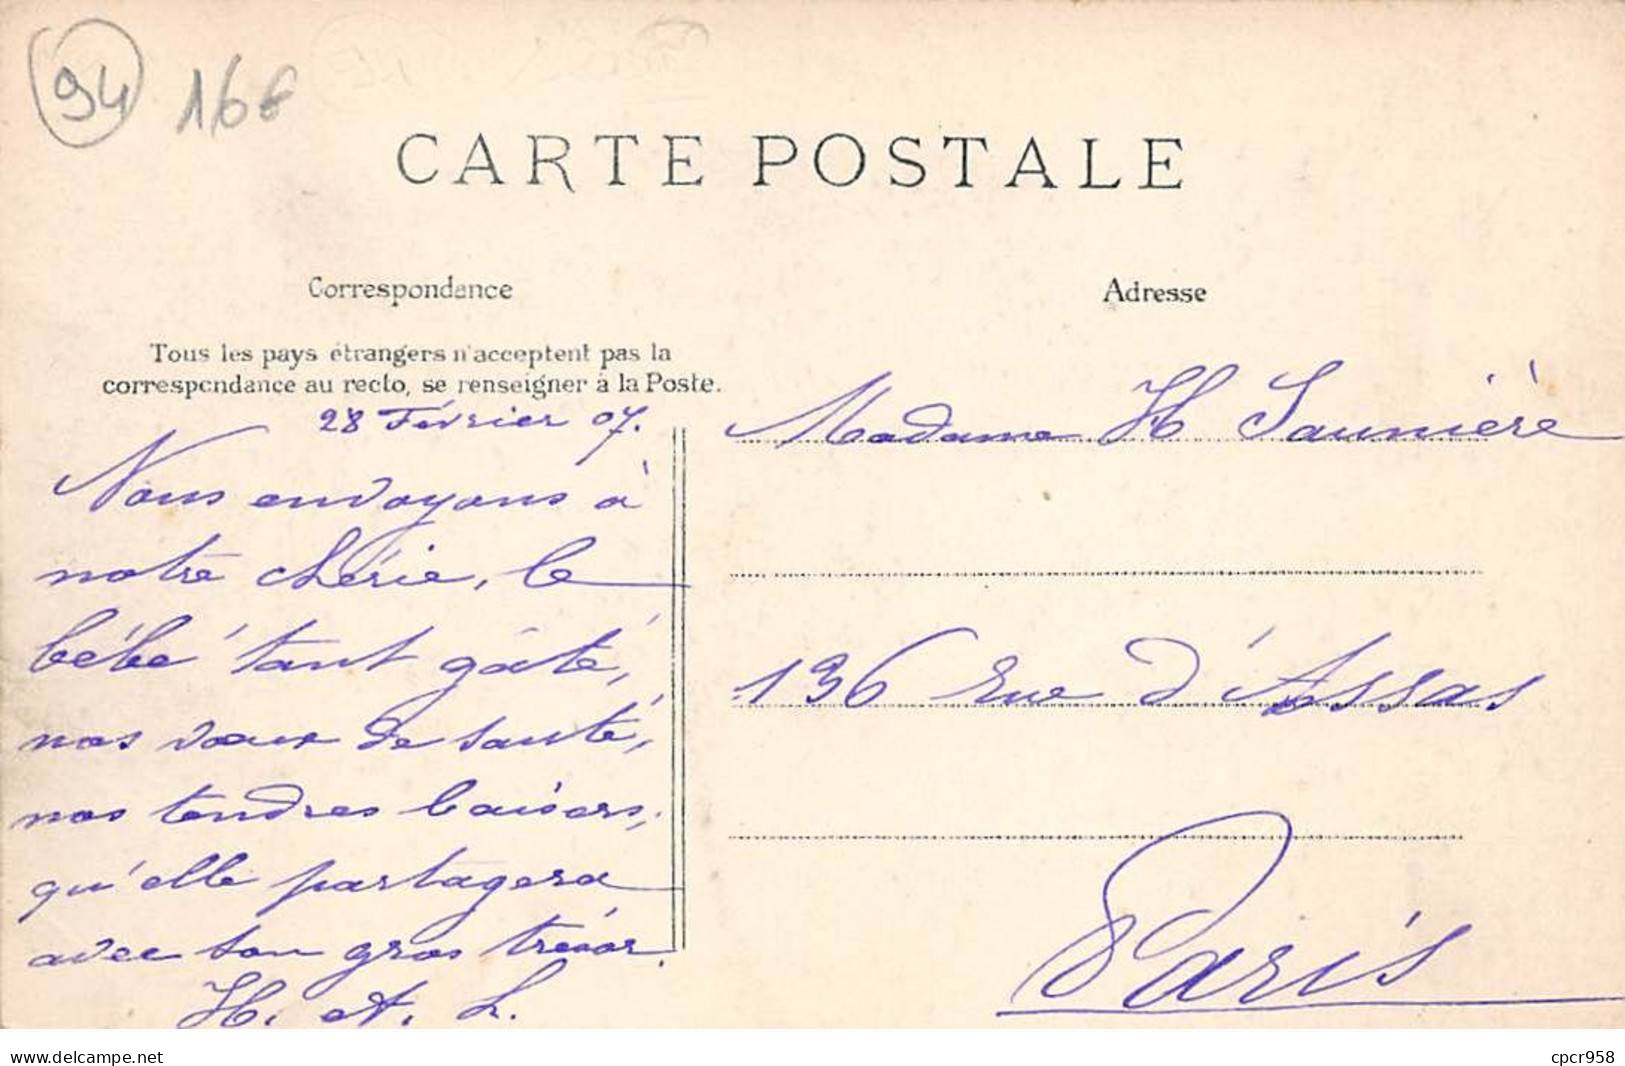 94 16€
CARTE POSTALE
Correspondance
Tous les pays étrangers n'acceptent pas la
correspondance au recto, se renseigner à la Poste.
28 Février 07.
Nous envoyons à
notre chérie, le
bébé tant gâté,
nos vœux de santé,
nos tendres baisers,
qu'elle partagera
avec son gros trésor.
H. et. L.
Adresse
Madame H Saunière
136 rue d'Assas
Paris
www.delcampe.net
cpcr958